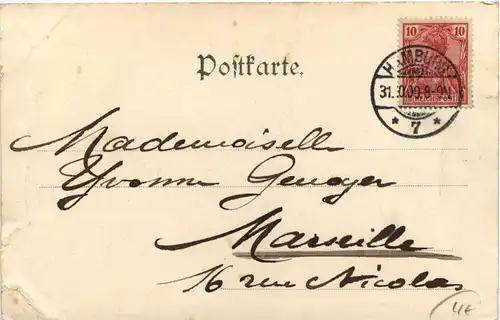 10 10
HAMBURG
Postkarte.
31.10.00.8-9N.
* 7 *
Mademoiselle
Yvonne Genoyer
Marseille
16 rue Nicolas
4€